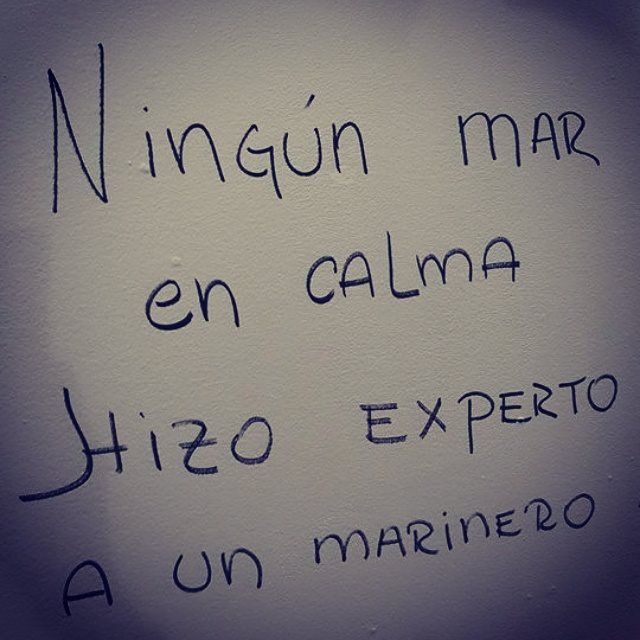 Ningún MAR
en CALMA
Hizo EXPERTO
A un MARINERO